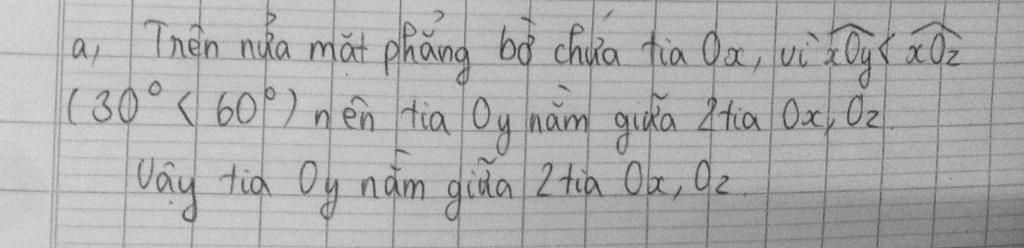 a, Trên nửa mặt phẳng bờ chứa tia Ox, vì xOy < xOz
(30° < 60°) nên tia Oy nằm giữa 2 tia Ox, Oz
Vậy tia Oy nằm giữa 2 tia Ox, Oz.